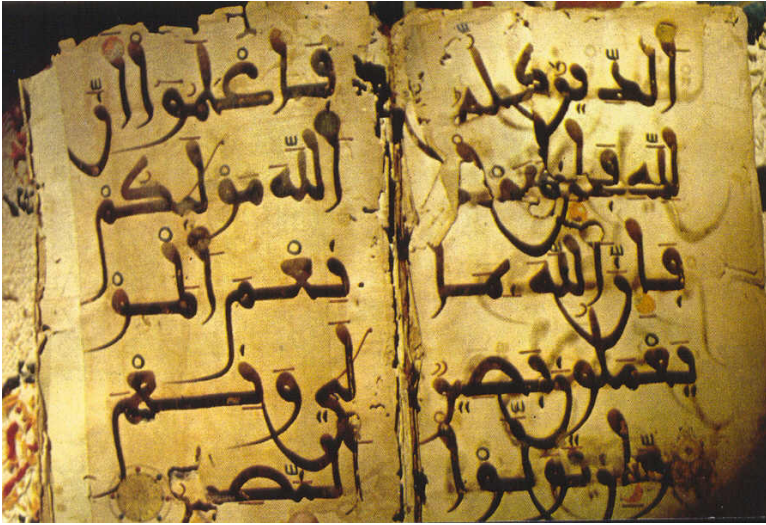 الدين كله
لله فإن انتهوا
فإن الله بما
يعملون بصير
وإن تولوا
فاعلموا أن
الله موليكم
نعم المو
لى ونعم
النصير